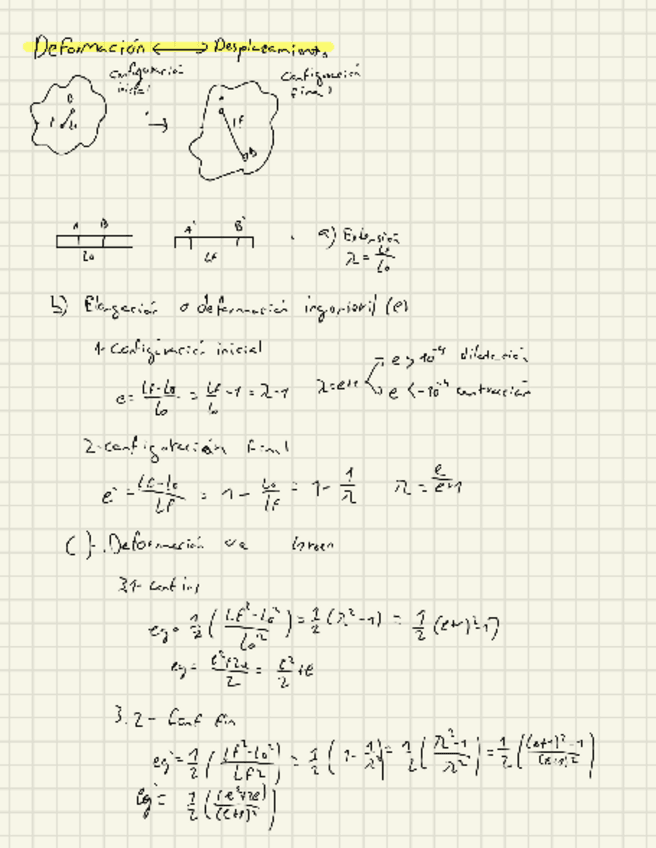 Deformación ⟷ Desplazamiento
Configuración inicial
Configuración final
B
lo
→
lf
B
A B
lo
A' B'
lf
a) Extensión
λ = lf/lo
b) Elongación o deformación ingenieril (e)
1- Configuración inicial
e = (lf-lo)/lo = lf/lo - 1 = λ-1
λ=e+1
e > 10^-4 dilatación
e < -10^-4 contracción
2- configuración final
e' = (lf-lo)/lf = 1 - lo/lf = 1 - 1/λ
λ = e/e'+1
c)- Deformación Green
3.1- conf ini
eg = 1/2 ((lf²-lo²)/lo²) = 1/2 (λ²-1) = 1/2 (e+1)²-1)
eg = (e²+2e)/2 = e²/2 + e
3.2- Conf fin
eg' = 1/2 ((lf²-lo²)/lf²) = 1/2 (1 - 1/λ²) = 1/2 ((λ²-1)/λ²) = 1/2 (((e+1)²-1)/(e+1)²)
eg' = 1/2 ((e²+2e)/(e+1)²)